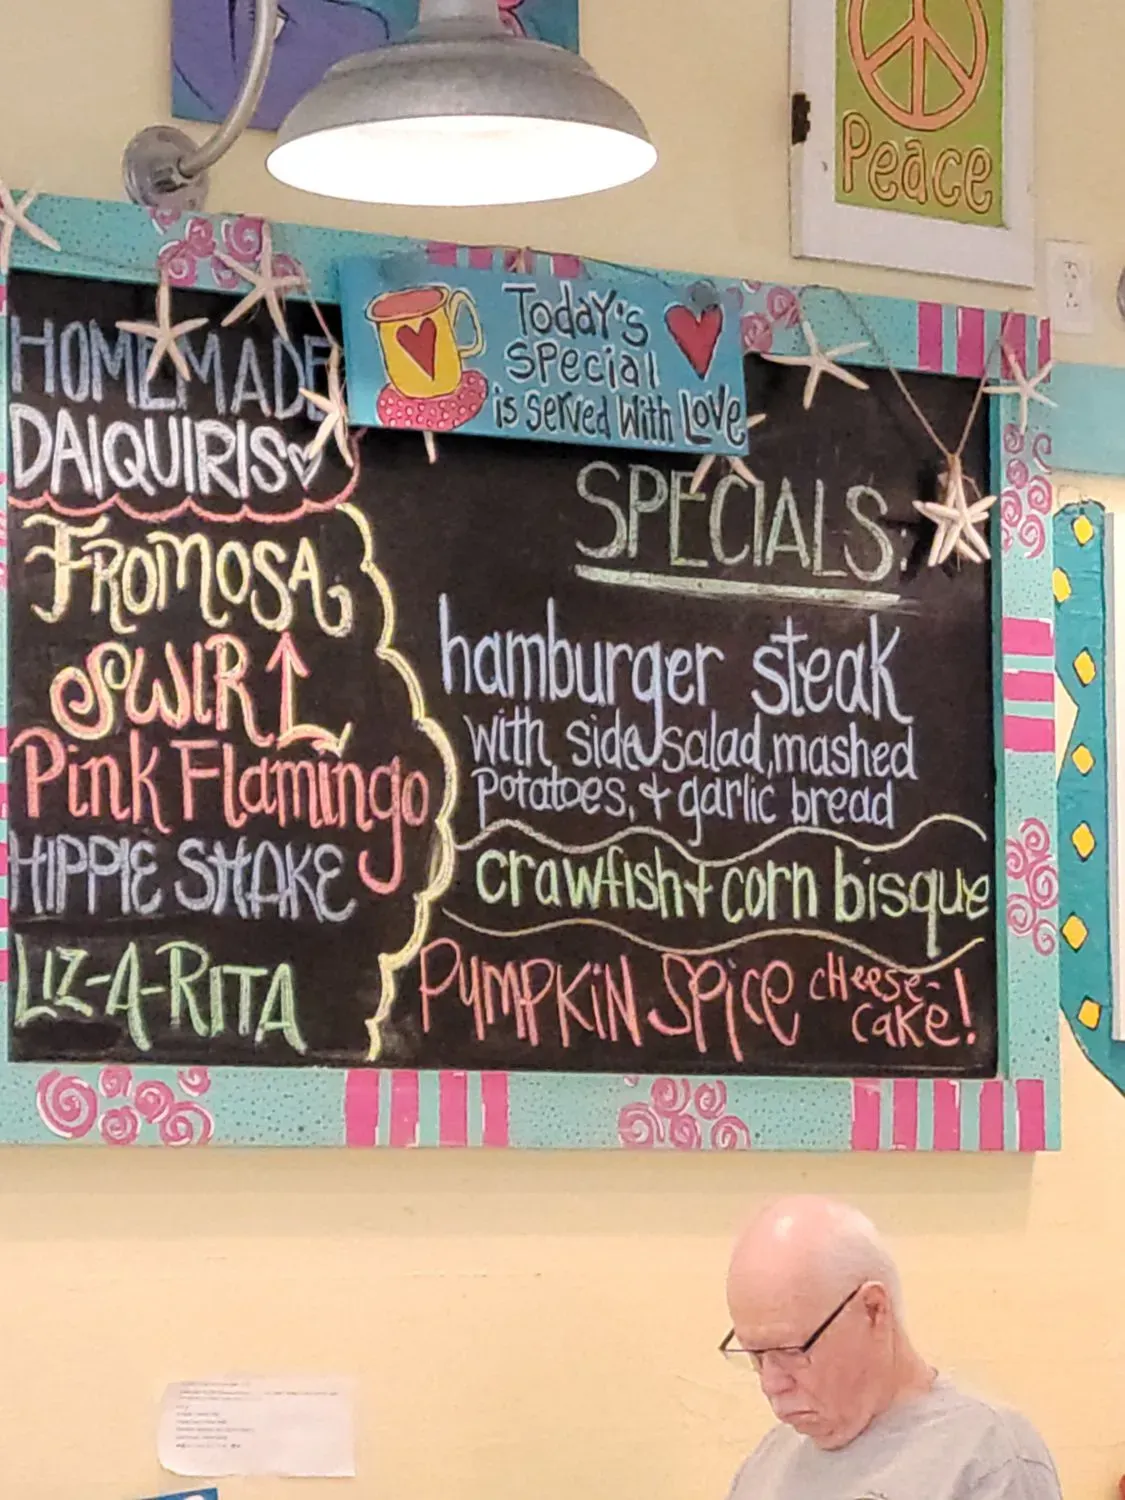 Peace
Today's
Special
is served with Love
HOMEMADE
DAIQUIRIS
FROMOSA
SWIRL
Pink Flamingo
HIPPIE SHAKE
LIZ-A-RITA
SPECIALS:
hamburger steak
with side salad, mashed
potatoes, + garlic bread
crawfish + corn bisque
PUMPKIN SPICE CHEESE-
CAKE!